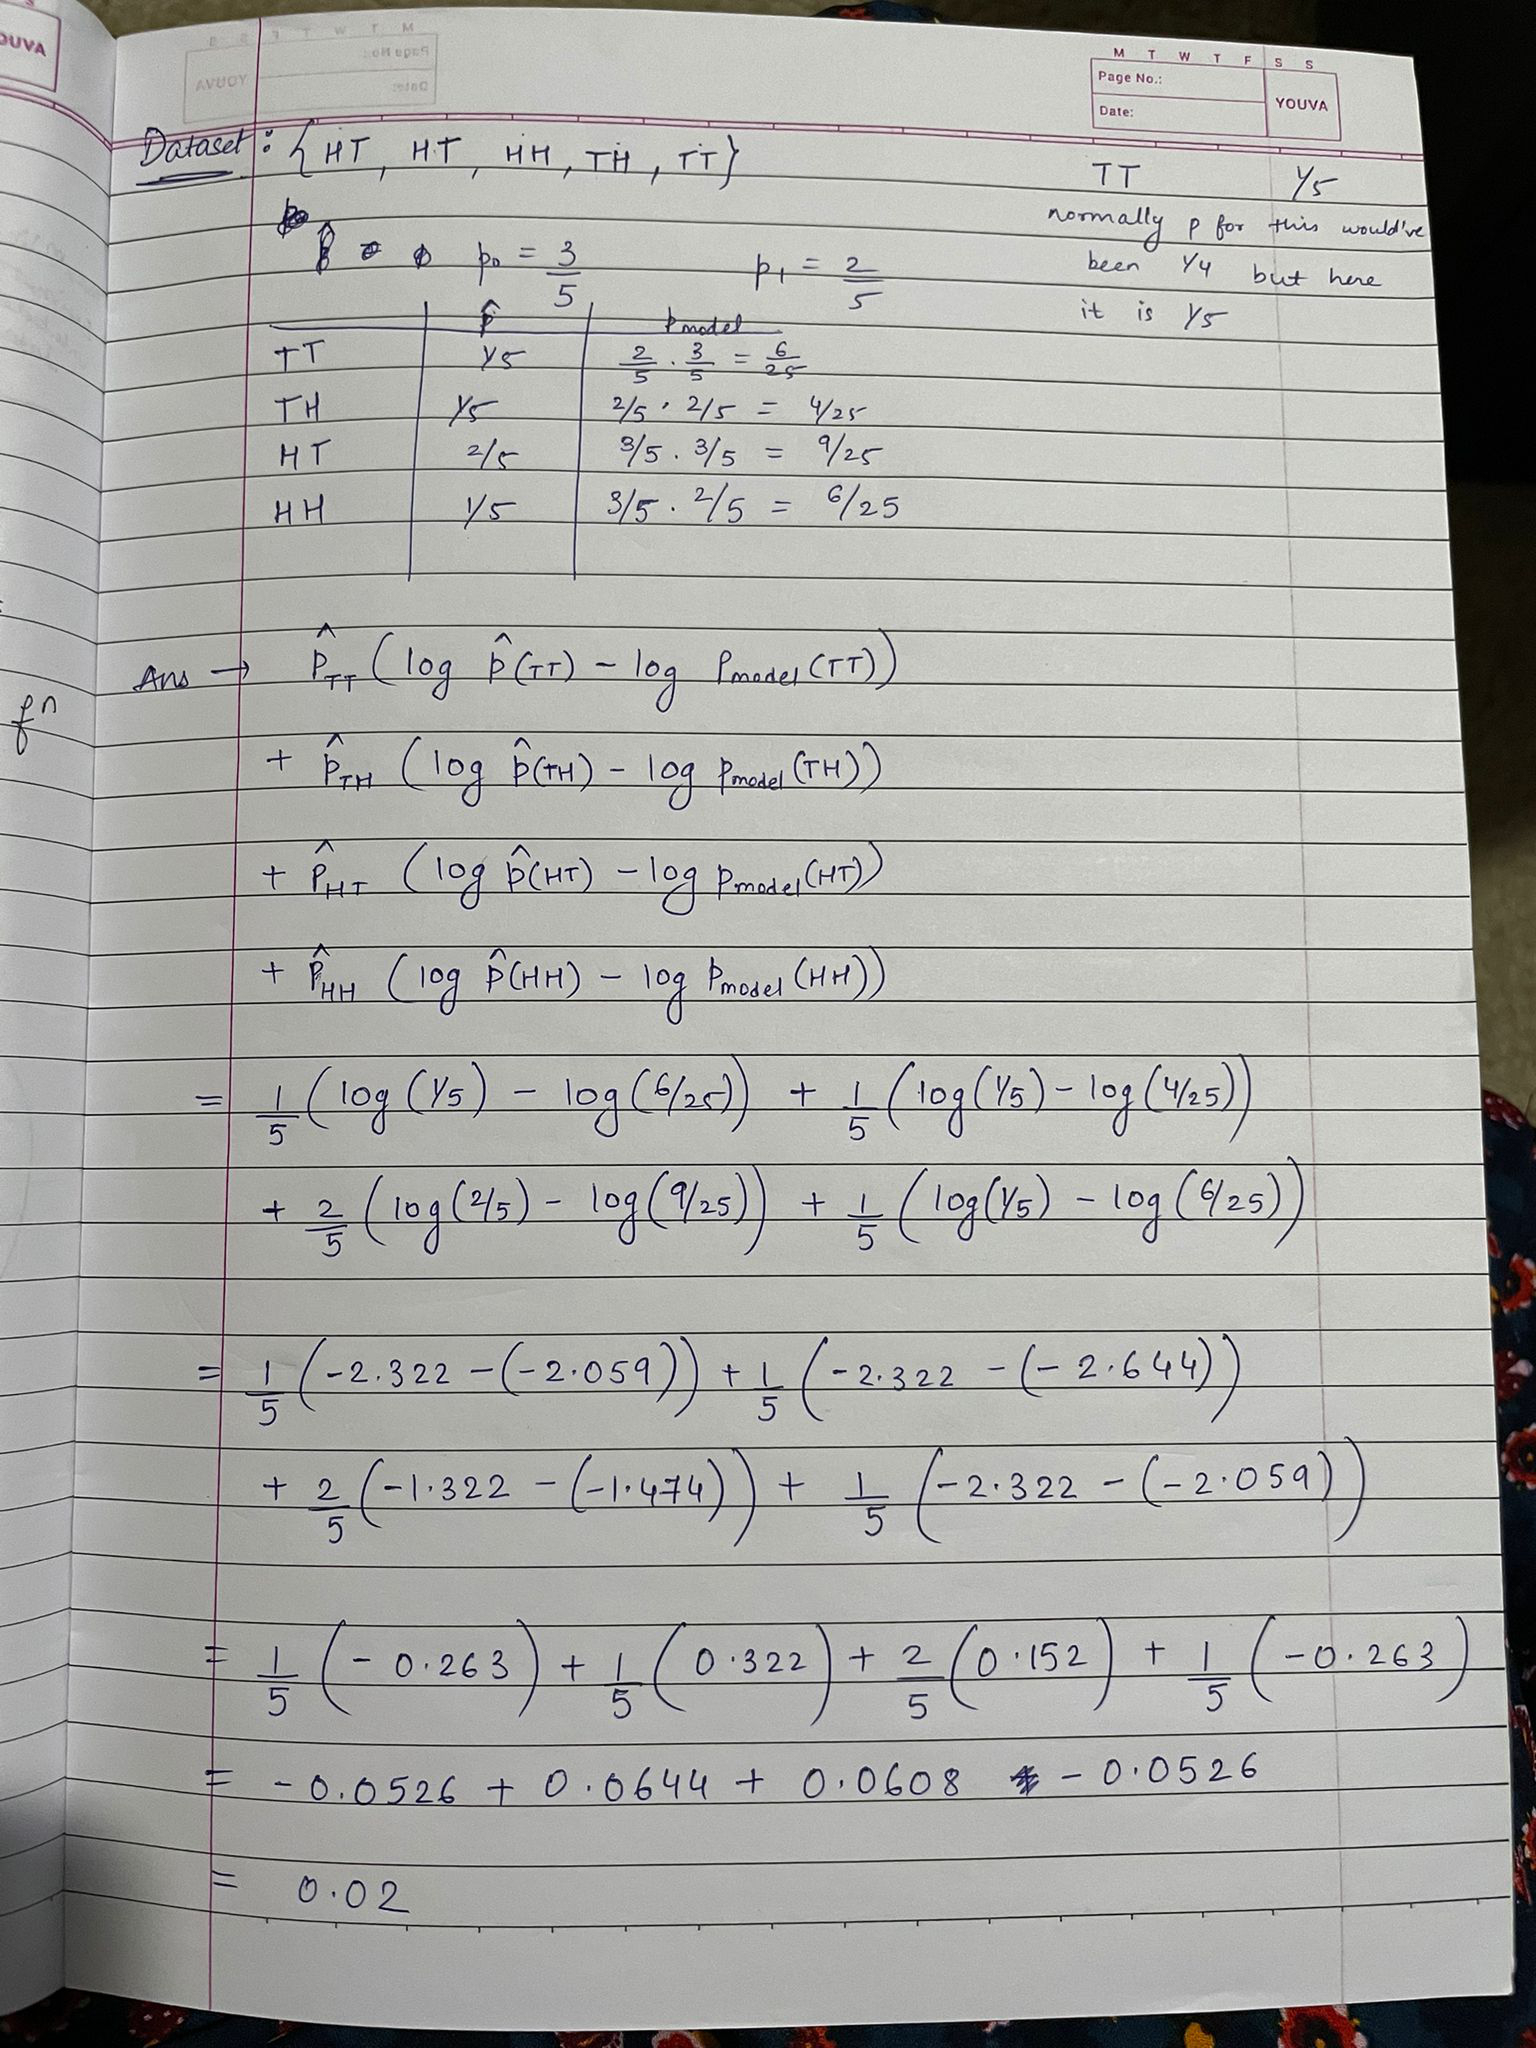 OUVA
M T W T F S S
Page No.:
Date:
YOUVA
Dataset : { HT, HT, HH, TH, TT }
TT 1/5
normally p for this would've
been 1/4 but here
it is 1/5
p₀ = 3/5 p₁ = 2/5
p̂ Pmodel
TT 1/5 2/5 · 3/5 = 6/25
TH 1/5 2/5 · 2/5 = 4/25
HT 2/5 3/5 · 3/5 = 9/25
HH 1/5 3/5 · 2/5 = 6/25
fⁿ
Ans → p̂TT (log p̂(TT) - log Pmodel(TT))
+ p̂TH (log p̂(TH) - log Pmodel(TH))
+ p̂HT (log p̂(HT) - log Pmodel(HT))
+ p̂HH (log p̂(HH) - log Pmodel(HH))
= 1/5 (log(1/5) - log(6/25)) + 1/5 (log(1/5) - log(4/25))
+ 2/5 (log(2/5) - log(9/25)) + 1/5 (log(1/5) - log(6/25))
= 1/5 (-2.322 - (-2.059)) + 1/5 (-2.322 - (-2.644))
+ 2/5 (-1.322 - (-1.474)) + 1/5 (-2.322 - (-2.059))
= 1/5 (-0.263) + 1/5 (0.322) + 2/5 (0.152) + 1/5 (-0.263)
= -0.0526 + 0.0644 + 0.0608 - 0.0526
= 0.02